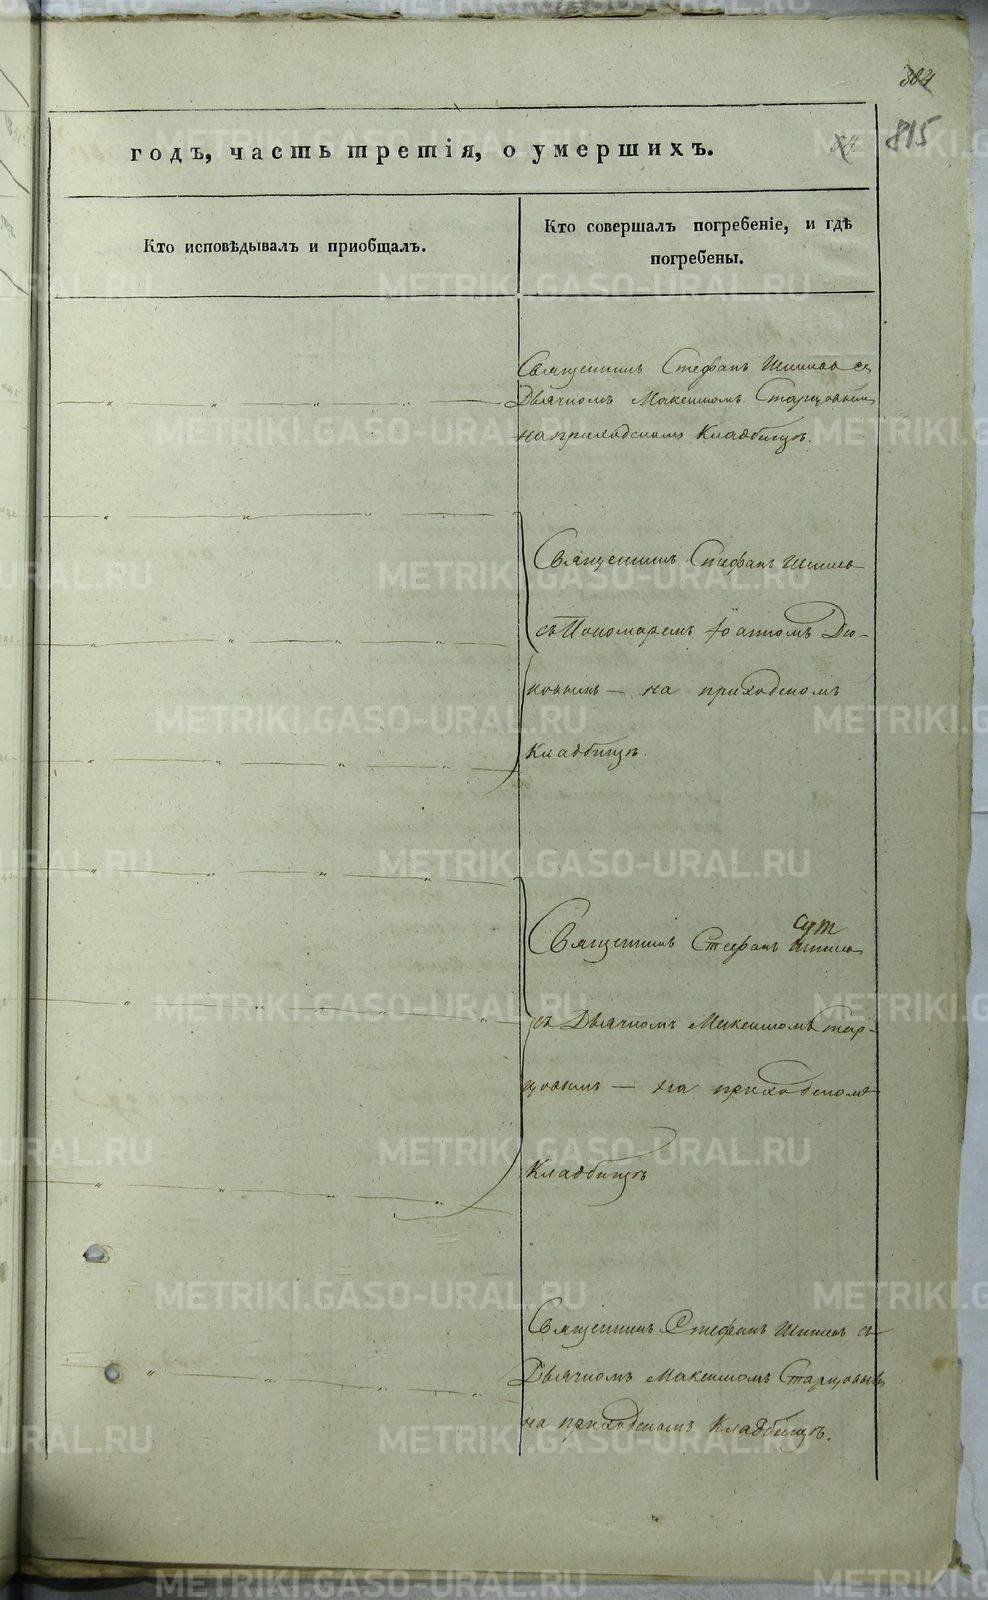 815
годъ, часть третія, о умершихъ.
Кто исповѣдывалъ и приобщалъ.
Кто совершалъ погребеніе, и гдѣ
погребены.
Священникъ Стефанъ съ
Дьячкомъ Максимомъ Старцовымъ
на приходскомъ Кладбищѣ.
Священникъ Стефанъ
съ Пономаремъ Іоанномъ Дю-
ковымъ — на приходскомъ
Кладбищѣ.
Священникъ Стефанъ
съ Дьячкомъ Максимомъ Стар-
цовымъ — на приходскомъ
Кладбищѣ
Священникъ Стефанъ съ
Дьячкомъ Максимомъ Старцовымъ
на приходскомъ Кладбищѣ.
METRIKI.GASO-URAL.RU